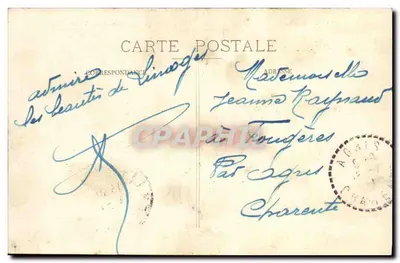 CARTE POSTALE
CORRESPONDANCE
ADRESSE
admire
les beautés de Limoges
Mademoiselle
Jeanne Raynaud
à Fougères
Par Agris
Charente
CPARAMA
AGRIS